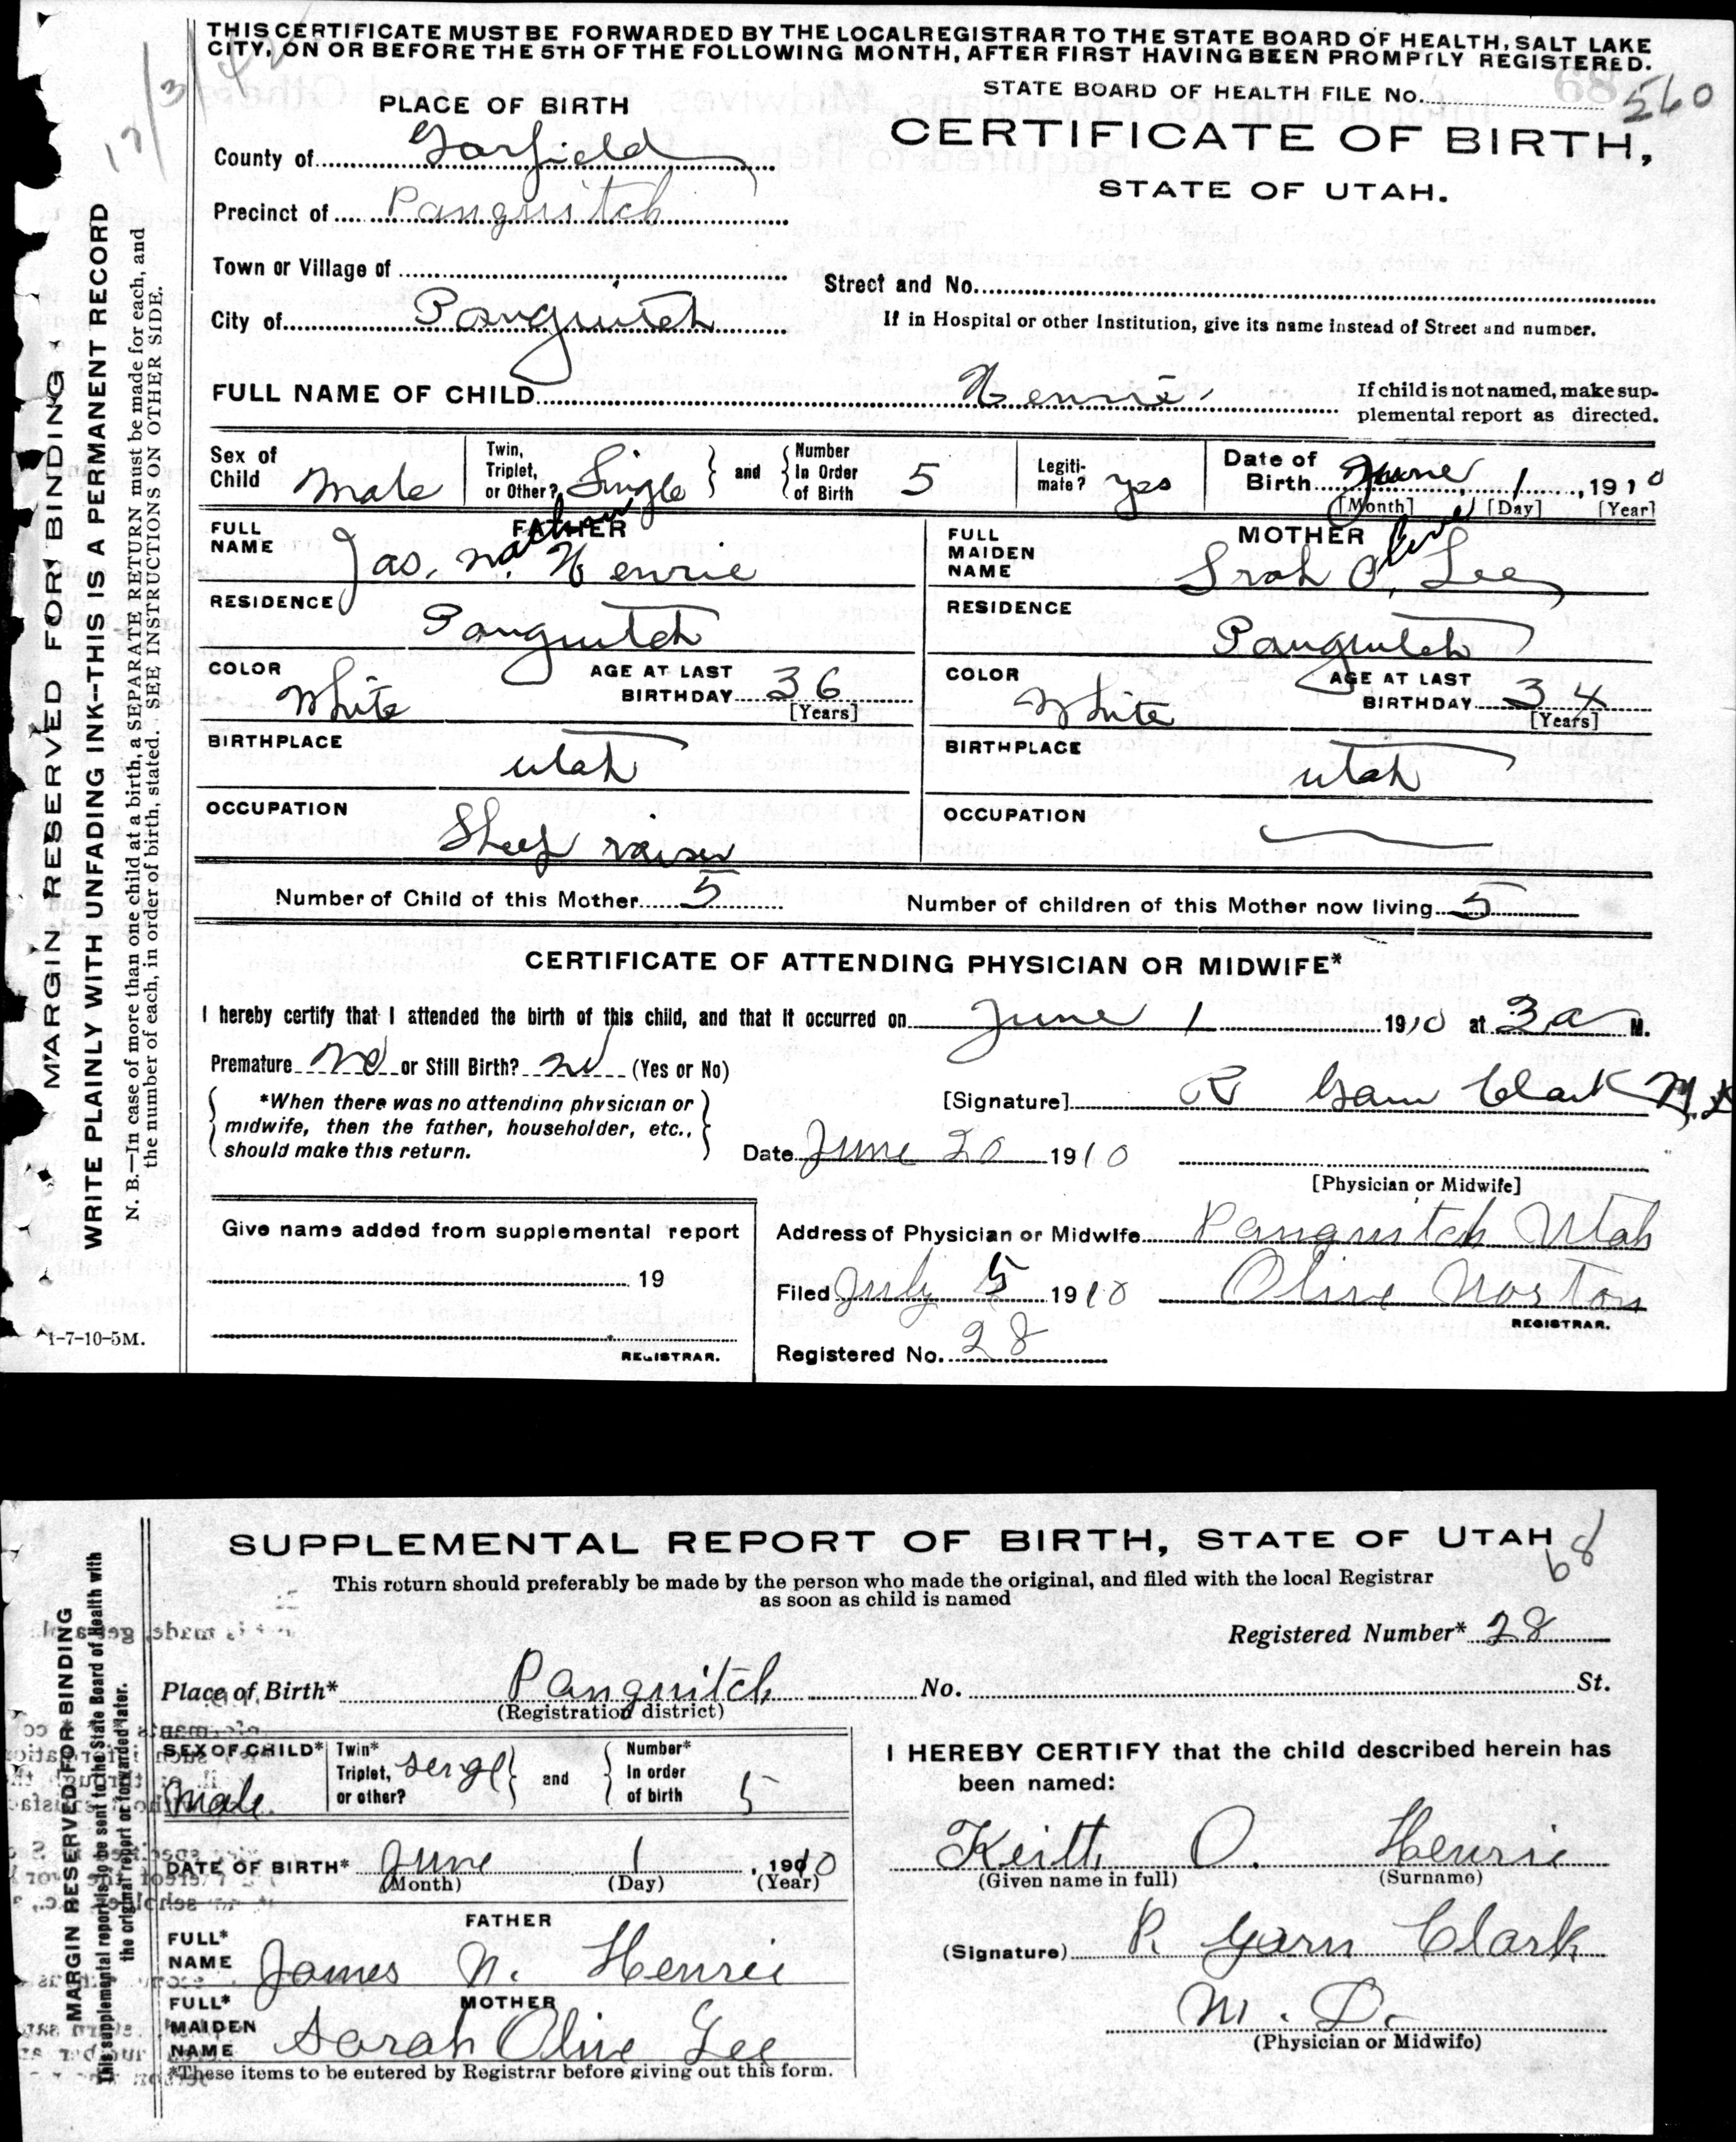 THIS CERTIFICATE MUST BE FORWARDED BY THE LOCAL REGISTRAR TO THE STATE BOARD OF HEALTH, SALT LAKE
CITY, ON OR BEFORE THE 5TH OF THE FOLLOWING MONTH, AFTER FIRST HAVING BEEN PROMPTLY REGISTERED.
STATE BOARD OF HEALTH FILE No. 560
PLACE OF BIRTH
CERTIFICATE OF BIRTH,
STATE OF UTAH.
County of Garfield
Precinct of Panguitch
Town or Village of
Street and No.
City of Panguitch
If in Hospital or other Institution, give its name instead of Street and number.
FULL NAME OF CHILD Henrie
If child is not named, make sup-
plemental report as directed.
Sex of Child Male
Twin, Triplet, or Other? Single and Number In Order of Birth 5
Legiti-mate? yes
Date of Birth June 1, 1910
[Month] [Day] [Year]
FATHER
FULL NAME Jas. N. Henrie
MOTHER
FULL MAIDEN NAME Srah O. Lee
Olive
RESIDENCE Panguitch
RESIDENCE Panguitch
COLOR White AGE AT LAST BIRTHDAY 36 [Years]
COLOR White AGE AT LAST BIRTHDAY 34 [Years]
BIRTHPLACE Utah
BIRTHPLACE Utah
OCCUPATION Sheep raiser
OCCUPATION
Number of Child of this Mother 5 Number of children of this Mother now living 5
CERTIFICATE OF ATTENDING PHYSICIAN OR MIDWIFE*
I hereby certify that I attended the birth of this child, and that it occurred on June 1 1910 at 3 a M.
Premature no or Still Birth? no (Yes or No)
*When there was no attending physician or
midwife, then the father, householder, etc.,
should make this return.
[Signature] R Garn Clark M.D
Date June 20 1910
[Physician or Midwife]
Give name added from supplemental report
19
REGISTRAR.
Address of Physician or Midwife Panguitch Utah
Filed July 5 1910 Olive Norton
REGISTRAR.
Registered No. 28
MARGIN RESERVED FOR BINDING
WRITE PLAINLY WITH UNFADING INK--THIS IS A PERMANENT RECORD
N. B.—In case of more than one child at a birth, a SEPARATE RETURN must be made for each, and
the number of each, in order of birth, stated. SEE INSTRUCTIONS ON OTHER SIDE.
1-7-10-5M.
SUPPLEMENTAL REPORT OF BIRTH, STATE OF UTAH
68
This return should preferably be made by the person who made the original, and filed with the local Registrar
as soon as child is named
Registered Number* 28
Place of Birth* Panguitch No. St.
(Registration district)
SEX OF CHILD* Male
Twin* Triplet, or other? and Number* In order of birth 5
DATE OF BIRTH* June 1, 1910
(Month) (Day) (Year)
FATHER
FULL* NAME James N. Henrie
MOTHER
FULL* MAIDEN NAME Sarah Olive Lee
*These items to be entered by Registrar before giving out this form.
I HEREBY CERTIFY that the child described herein has
been named:
Keith O. Henrie
(Given name in full) (Surname)
(Signature) R Garn Clark
M. D.
(Physician or Midwife)
MARGIN RESERVED FOR BINDING
This supplemental report is to be sent to the State Board of Health with
the original report or forwarded later.